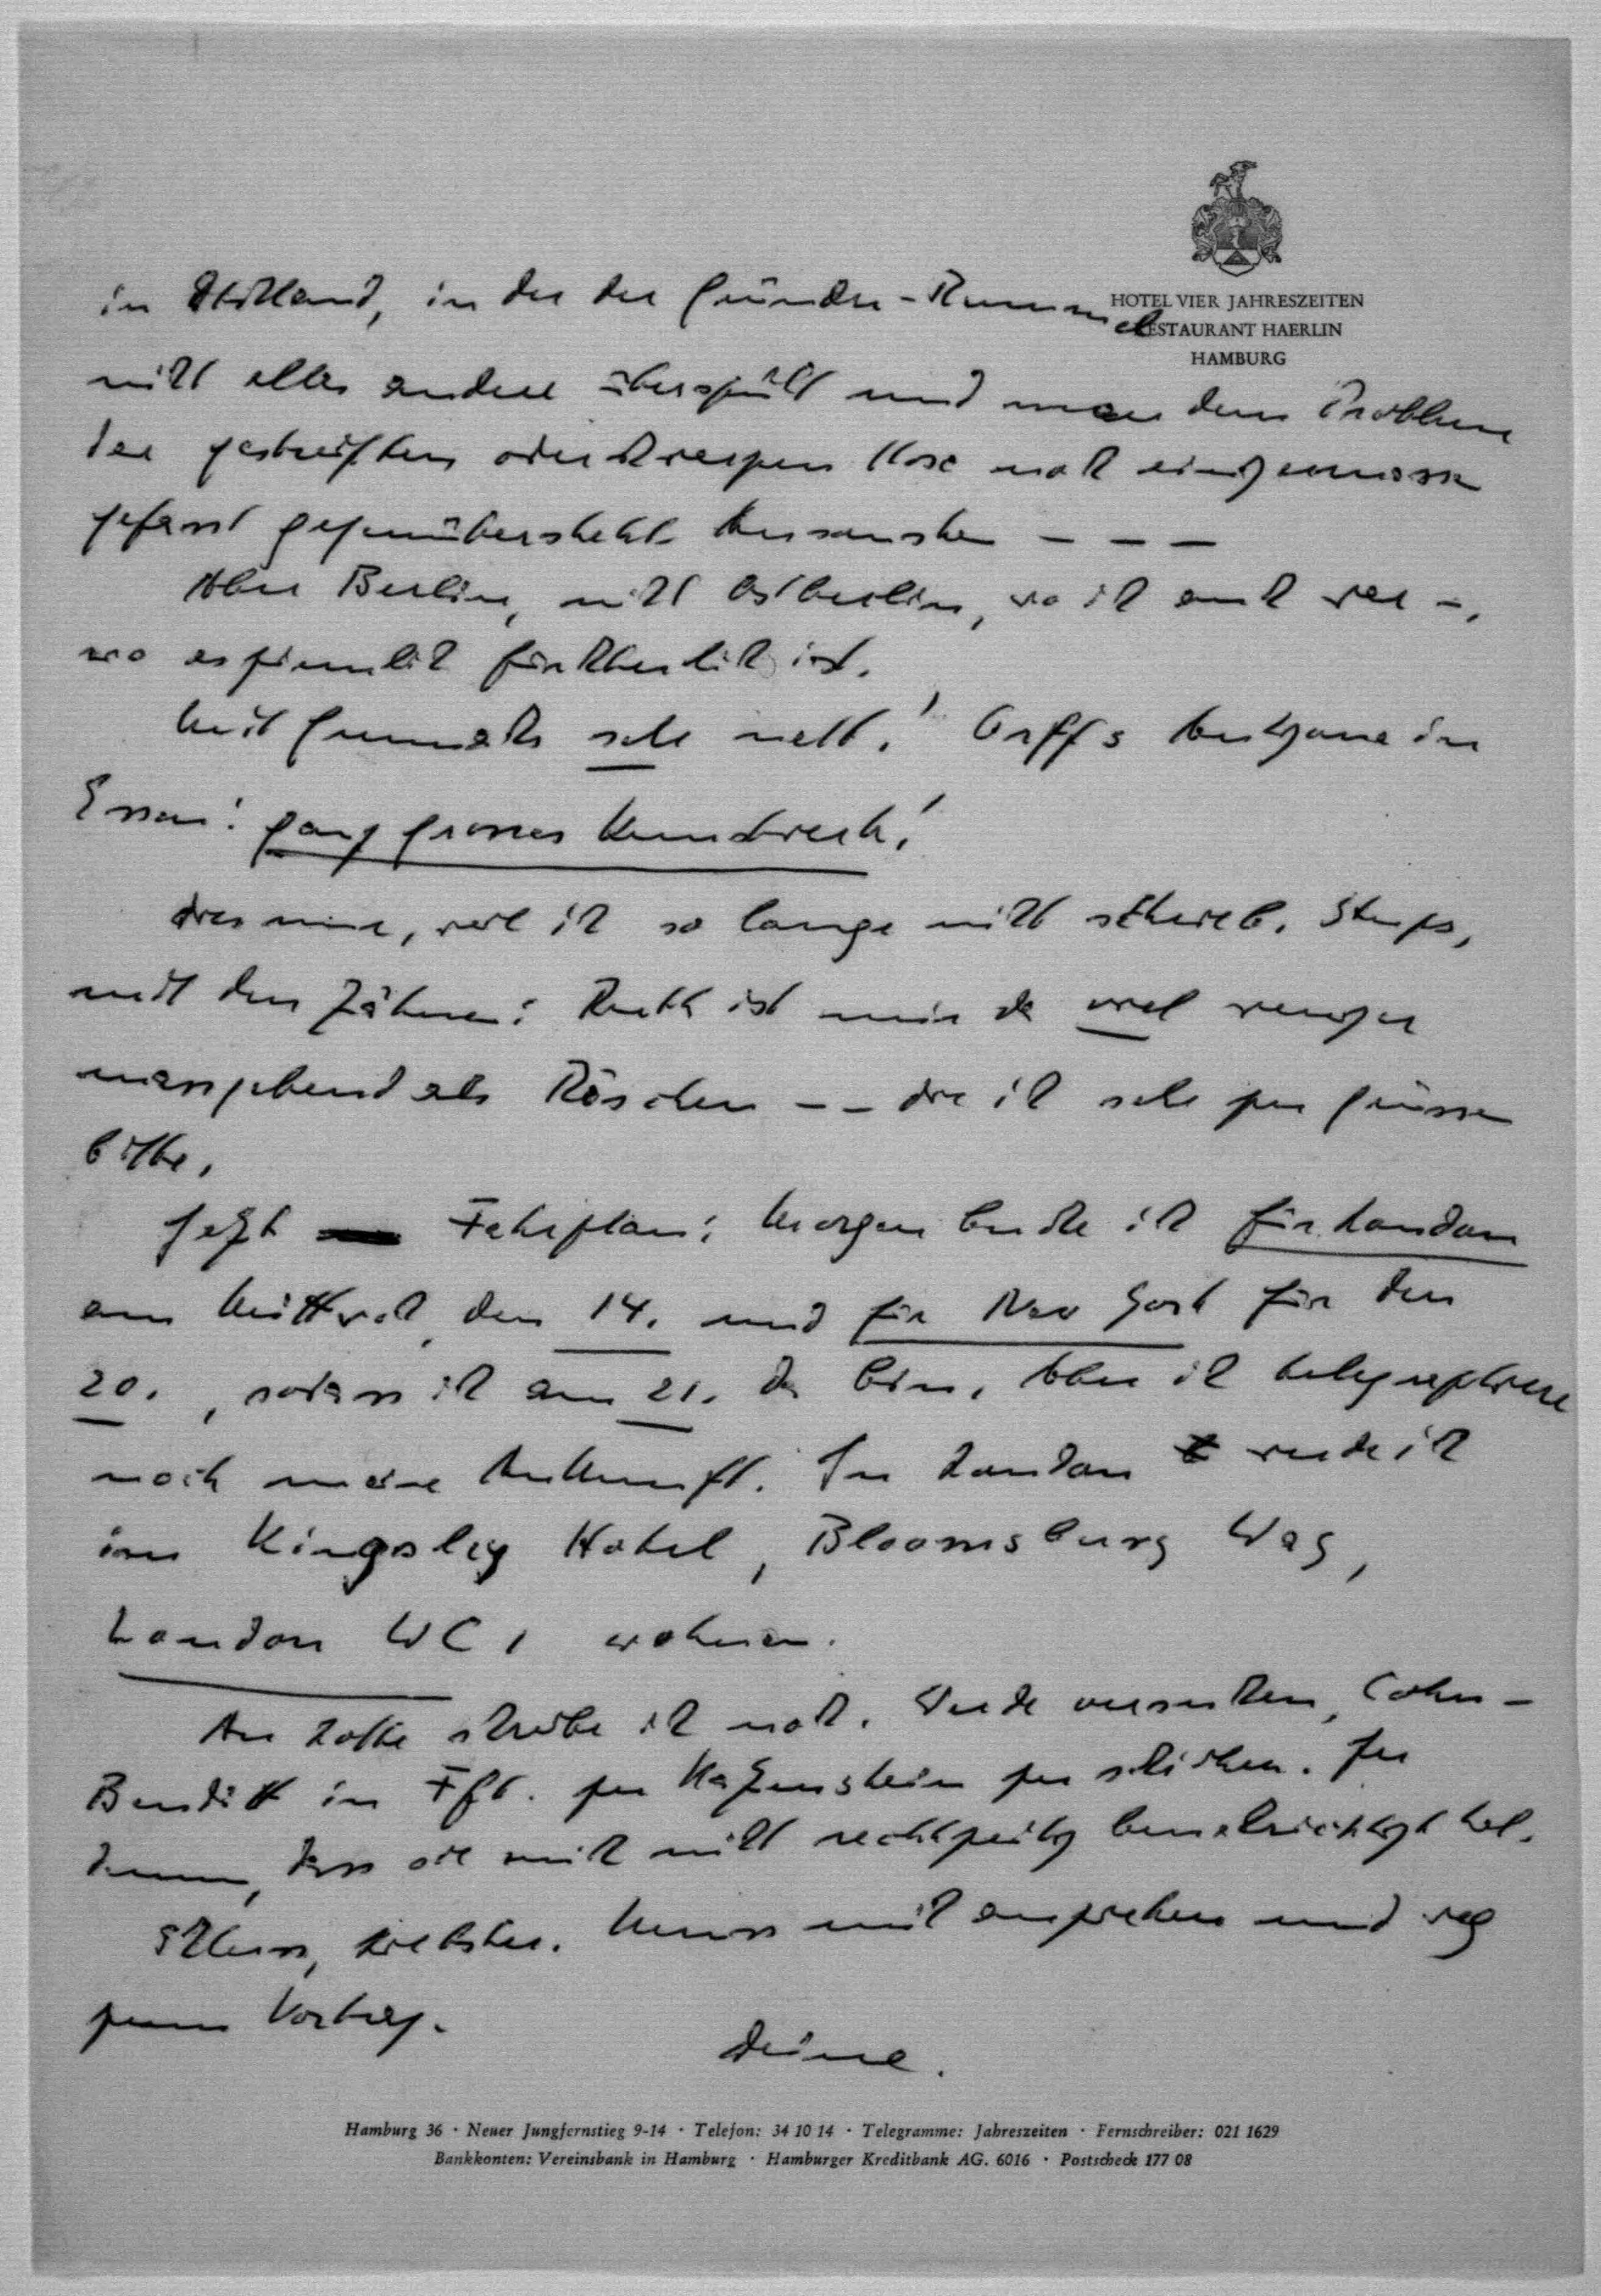 HOTEL VIER JAHRESZEITEN
RESTAURANT HAERLIN
HAMBURG
in Dtschland, in der der Gründer-Rummel
nicht alles andere überspült und man dem Problem
der gestreiften oder schwarzen Hose noch einigermassen
gefasst gegenübersteht. Ausserdem – – –
Aber Berlin, nicht Ostberlin, wo ich auch war –,
wo es ziemlich fürchterlich ist.
Mit sehr nett! Orffs Antigone in
Essen: ganz grosses Kunstwerk!
Dies nur, weil ich so lange nicht schrieb. Stups,
mit den Zähnen: Ruth ist mir da viel weniger
massgebend als Röschen – – die ich sehr zu grüssen
bitte.
Jetzt Fahrplan: Morgen buche ich für London
am Mittwoch, den 14. und für New York für den
20., sodass ich am 21. da bin. Aber ich telegraphiere
noch meine Ankunft. In London werde ich
im Kingsley Hotel, Bloomsbury Way,
London WC 1 wohnen.
An Lotte schreibe ich noch. Werde versuchen, Cohn-
Bendit in Fft. zu Katzenstein zu schicken. Zu
dumm, dass sie mich nicht rechtzeitig benachrichtigt hat.
Schluss, Liebster. Muss mich anziehen und weg
zum Vortrag.
Deine.
Hamburg 36 · Neuer Jungfernstieg 9-14 · Telefon: 34 10 14 · Telegramme: Jahreszeiten · Fernschreiber: 021 1629
Bankkonten: Vereinsbank in Hamburg · Hamburger Kreditbank AG. 6016 · Postscheck 177 08